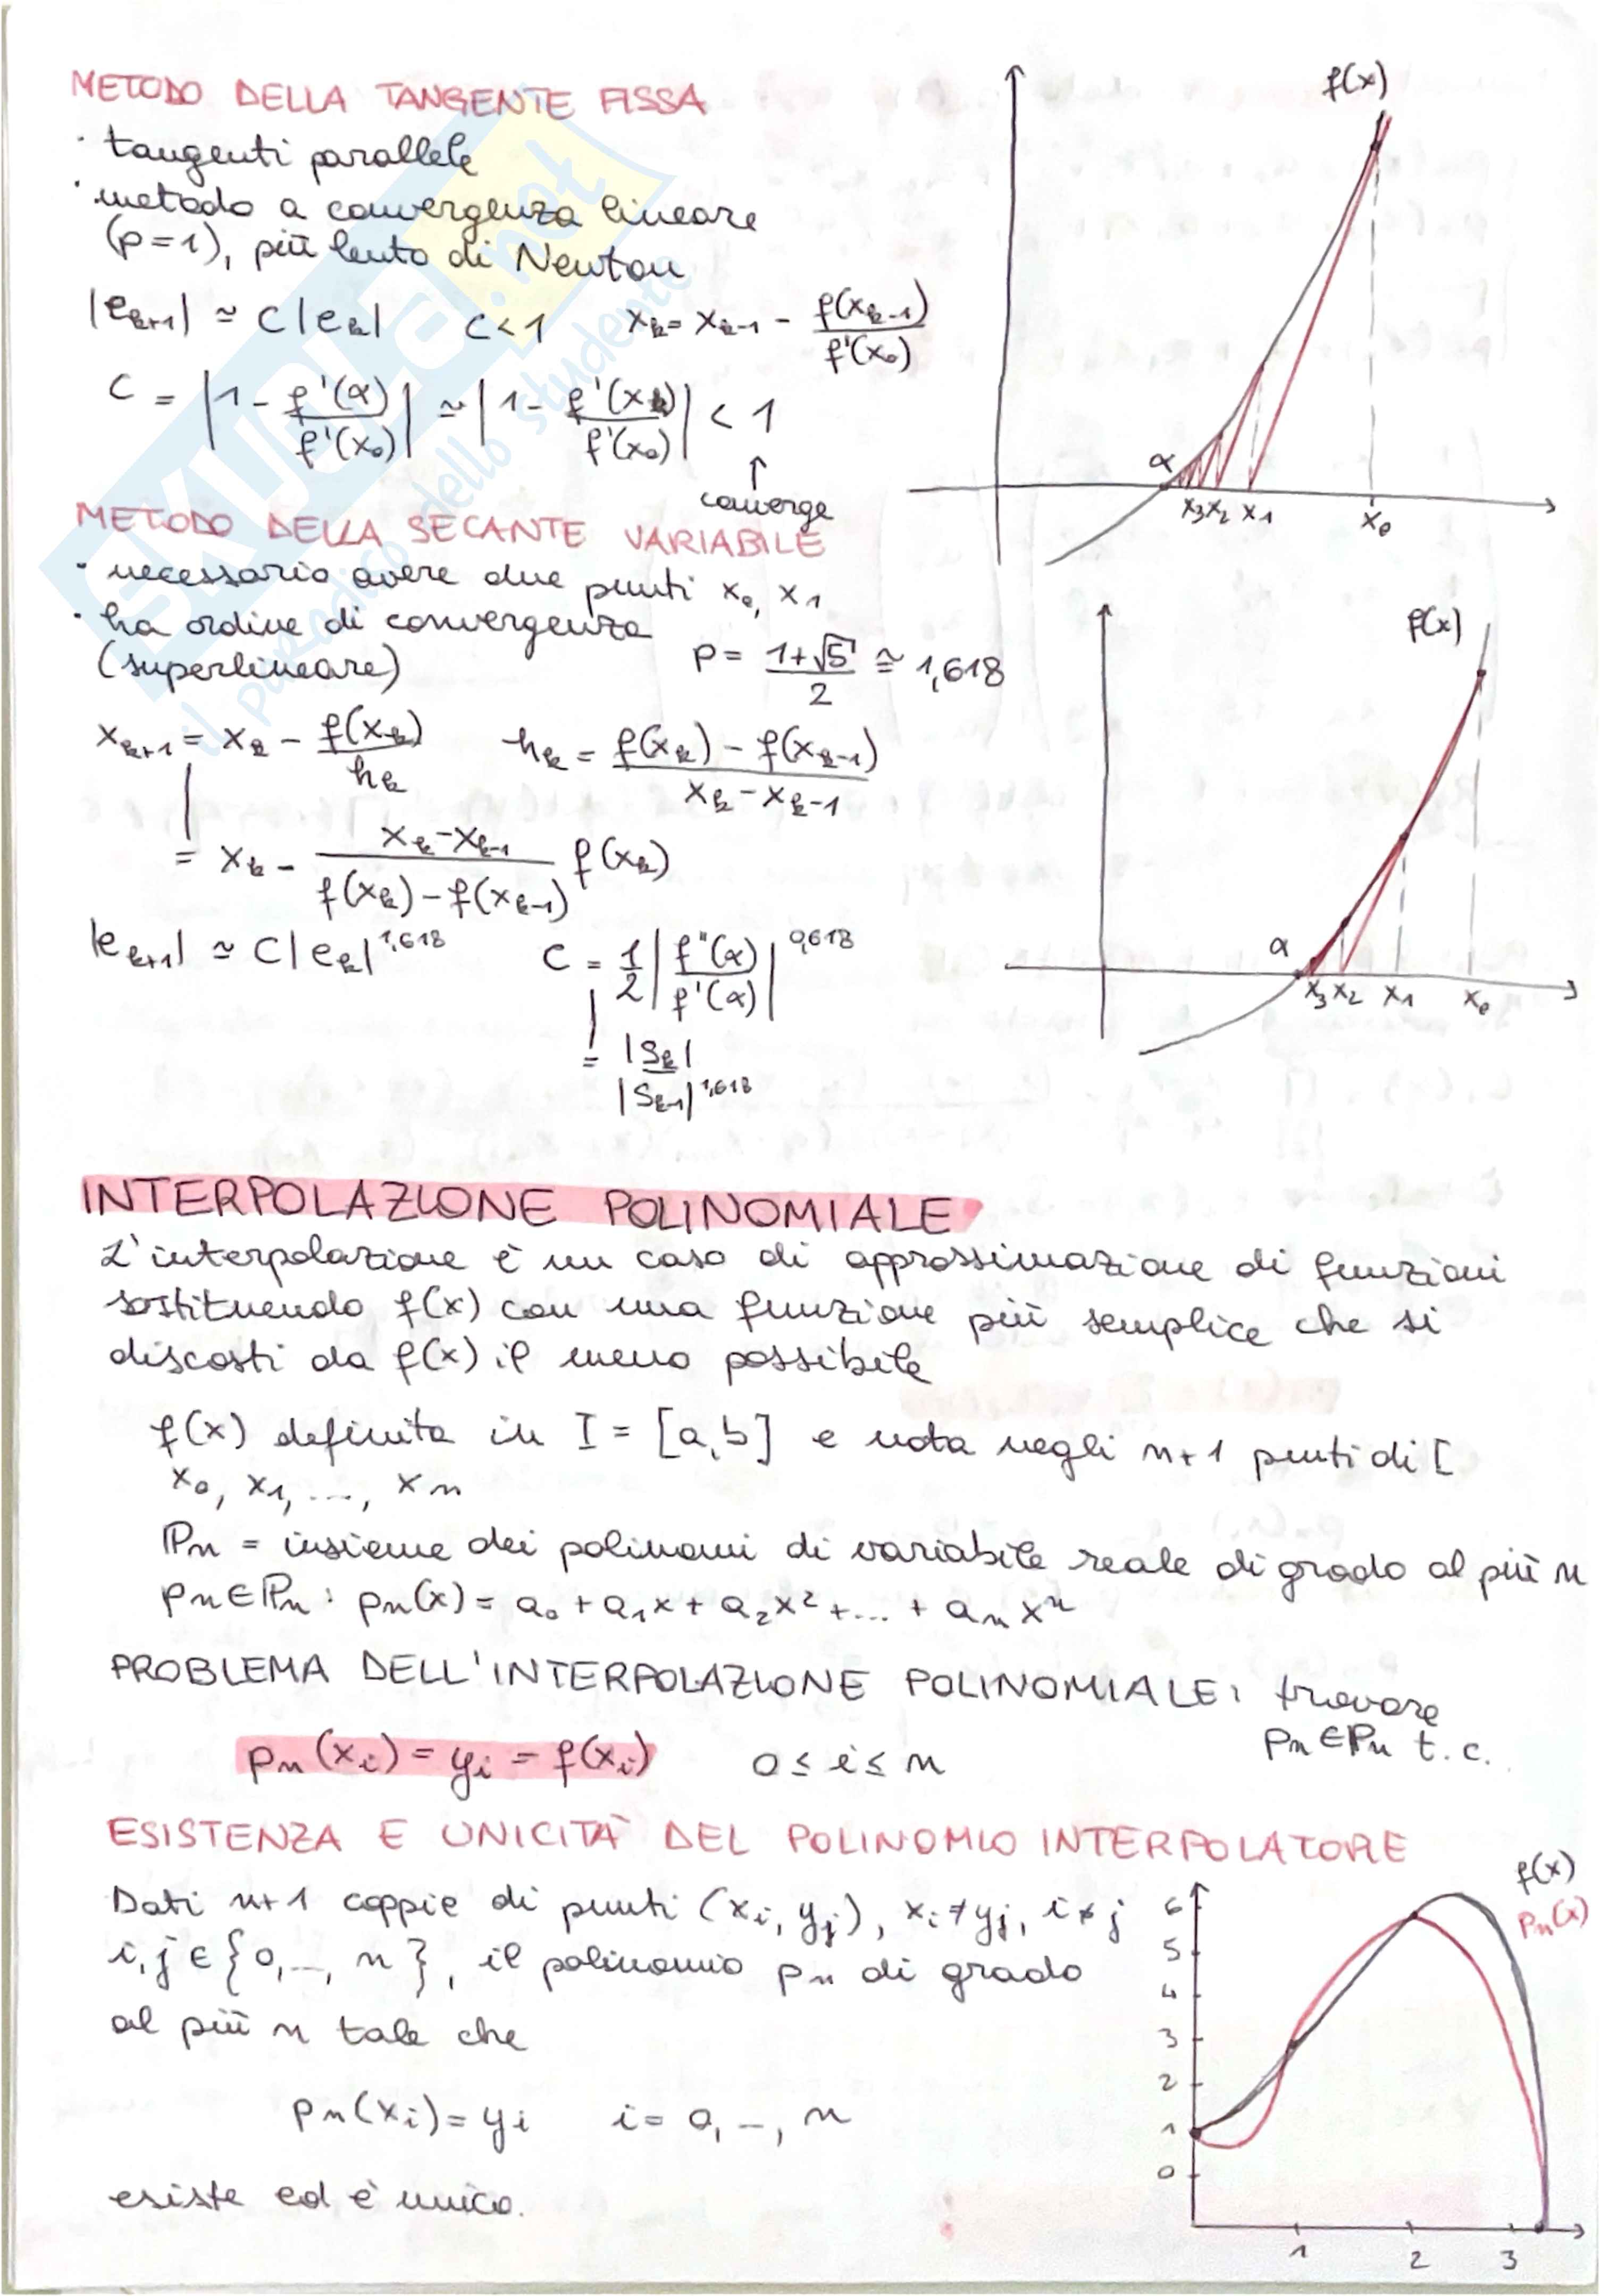 METODO DELLA TANGENTE FISSA
· tangenti parallele
· metodo a convergenza lineare
(p=1), più lento di Newton
|e_{k+1}| ≃ C|e_k|   C<1   x_k = x_{k-1} - f(x_{k-1})/f'(x_0)
C = |1 - f'(α)/f'(x_0)| ≃ |1 - f'(x_k)/f'(x_0)| < 1
↑
converge
f(x)
α
x_3 x_2 x_1 x_0
METODO DELLA SECANTE VARIABILE
· necessario avere due punti x_0, x_1
· ha ordine di convergenza
(superlineare)   p = (1+√5)/2 ≅ 1,618
x_{k+1} = x_k - f(x_k)/h_k   h_k = (f(x_k) - f(x_{k-1}))/(x_k - x_{k-1})
= x_k - (x_k - x_{k-1})/(f(x_k) - f(x_{k-1})) f(x_k)
|e_{k+1}| ≃ C|e_k|^{1,618}   C = 1/2 |f''(α)/f'(α)|^{0,618}
= |S_k|/|S_{k-1}|^{1,618}
f(x)
α
x_3 x_2 x_1 x_0
INTERPOLAZIONE POLINOMIALE
L'interpolazione è un caso di approssimazione di funzioni
sostituendo f(x) con una funzione più semplice che si
discosti da f(x) il meno possibile
f(x) definita in I = [a,b] e nota negli n+1 punti di I
x_0, x_1, ..., x_n
ℙ_n = insieme dei polinomi di variabile reale di grado al più n
p_n ∈ ℙ_n : p_n(x) = a_0 + a_1x + a_2x² + ... + a_n x^n
PROBLEMA DELL'INTERPOLAZIONE POLINOMIALE: trovare
p_n ∈ ℙ_n t.c.
p_n(x_i) = y_i = f(x_i)   0 ≤ i ≤ n
ESISTENZA E UNICITÀ DEL POLINOMIO INTERPOLATORE
Dati n+1 coppie di punti (x_i, y_j), x_i ≠ y_j, i ≠ j
i, j ∈ {0,..., n}, il polinomio p_n di grado
al più n tale che
p_n(x_i) = y_i   i = 0, ..., n
esiste ed è unico.
f(x)
p_n(x)
6
5
4
3
2
1
0
1 2 3
SKUOLA.net
il paradiso dello studente